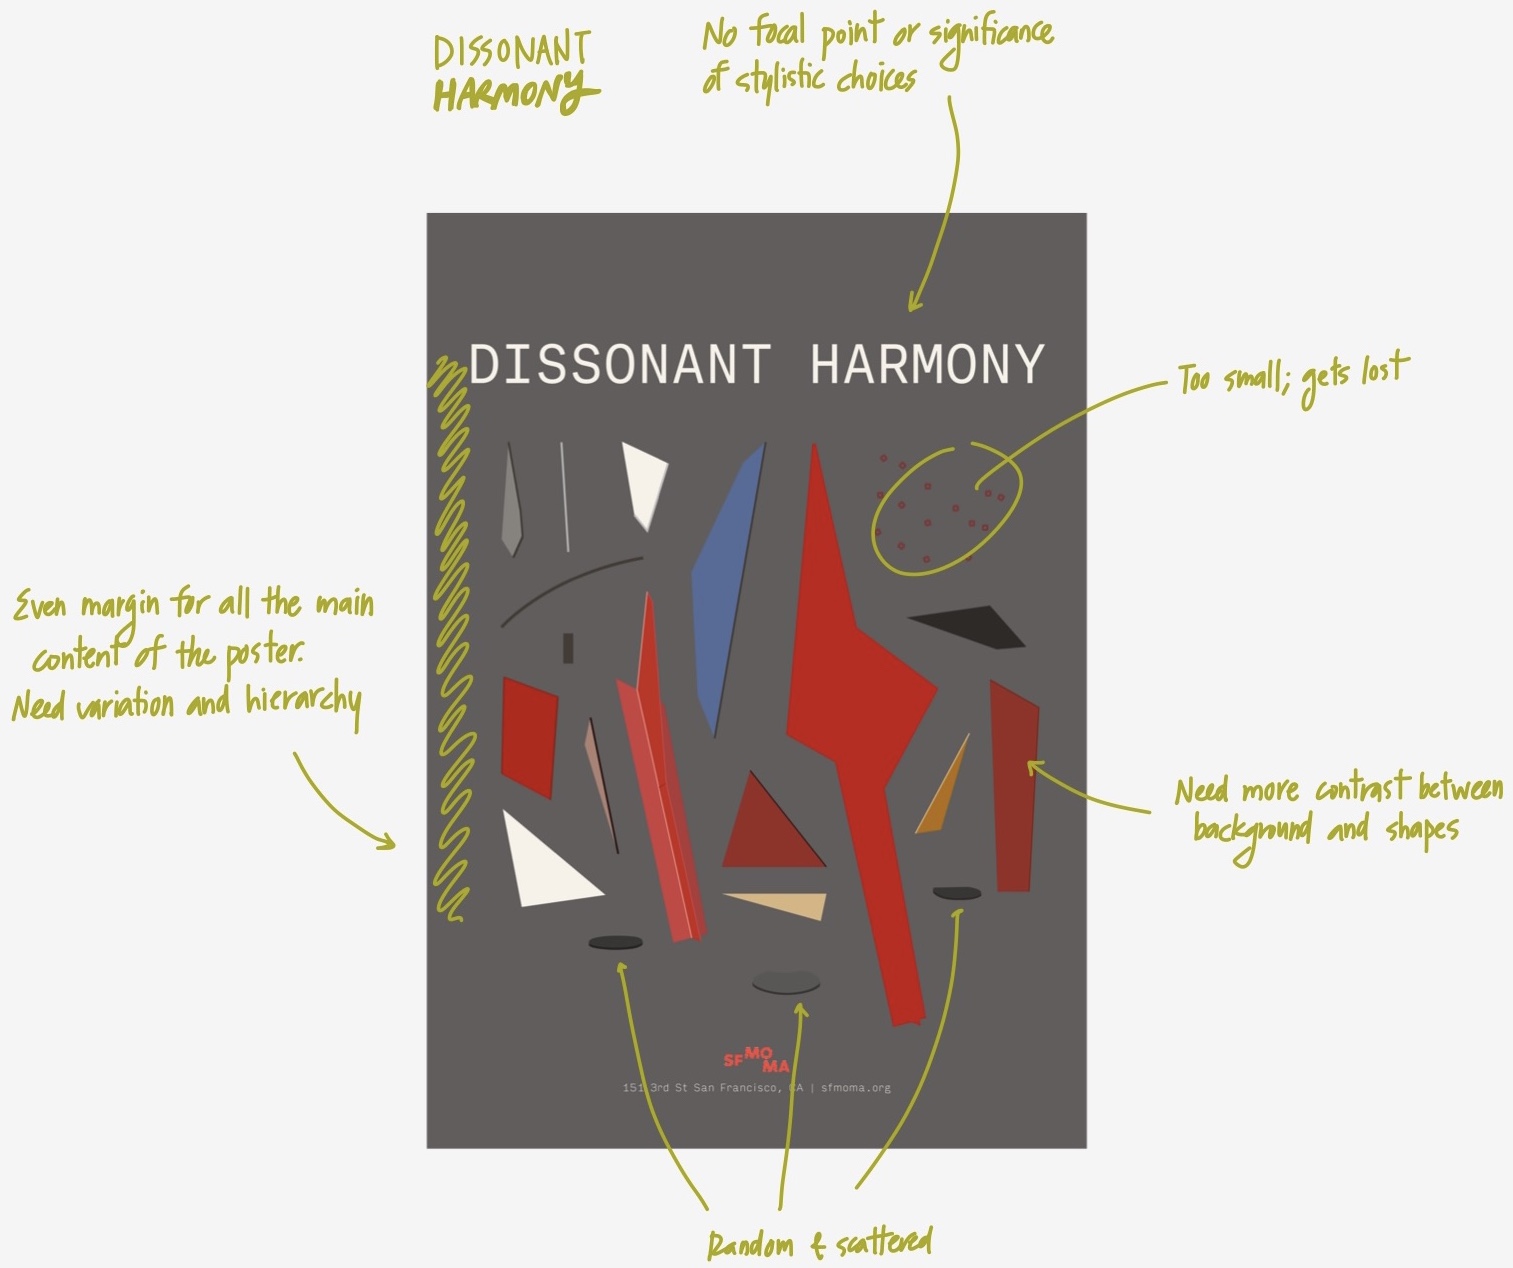 DISSONANT
HARMONY
No focal point or significance
of stylistic choices
DISSONANT HARMONY
Too small; gets lost
Even margin for all the main
content of the poster.
Need variation and hierarchy
Need more contrast between
background and shapes
SFMOMA
151 3rd St San Francisco, CA | sfmoma.org
Random & scattered